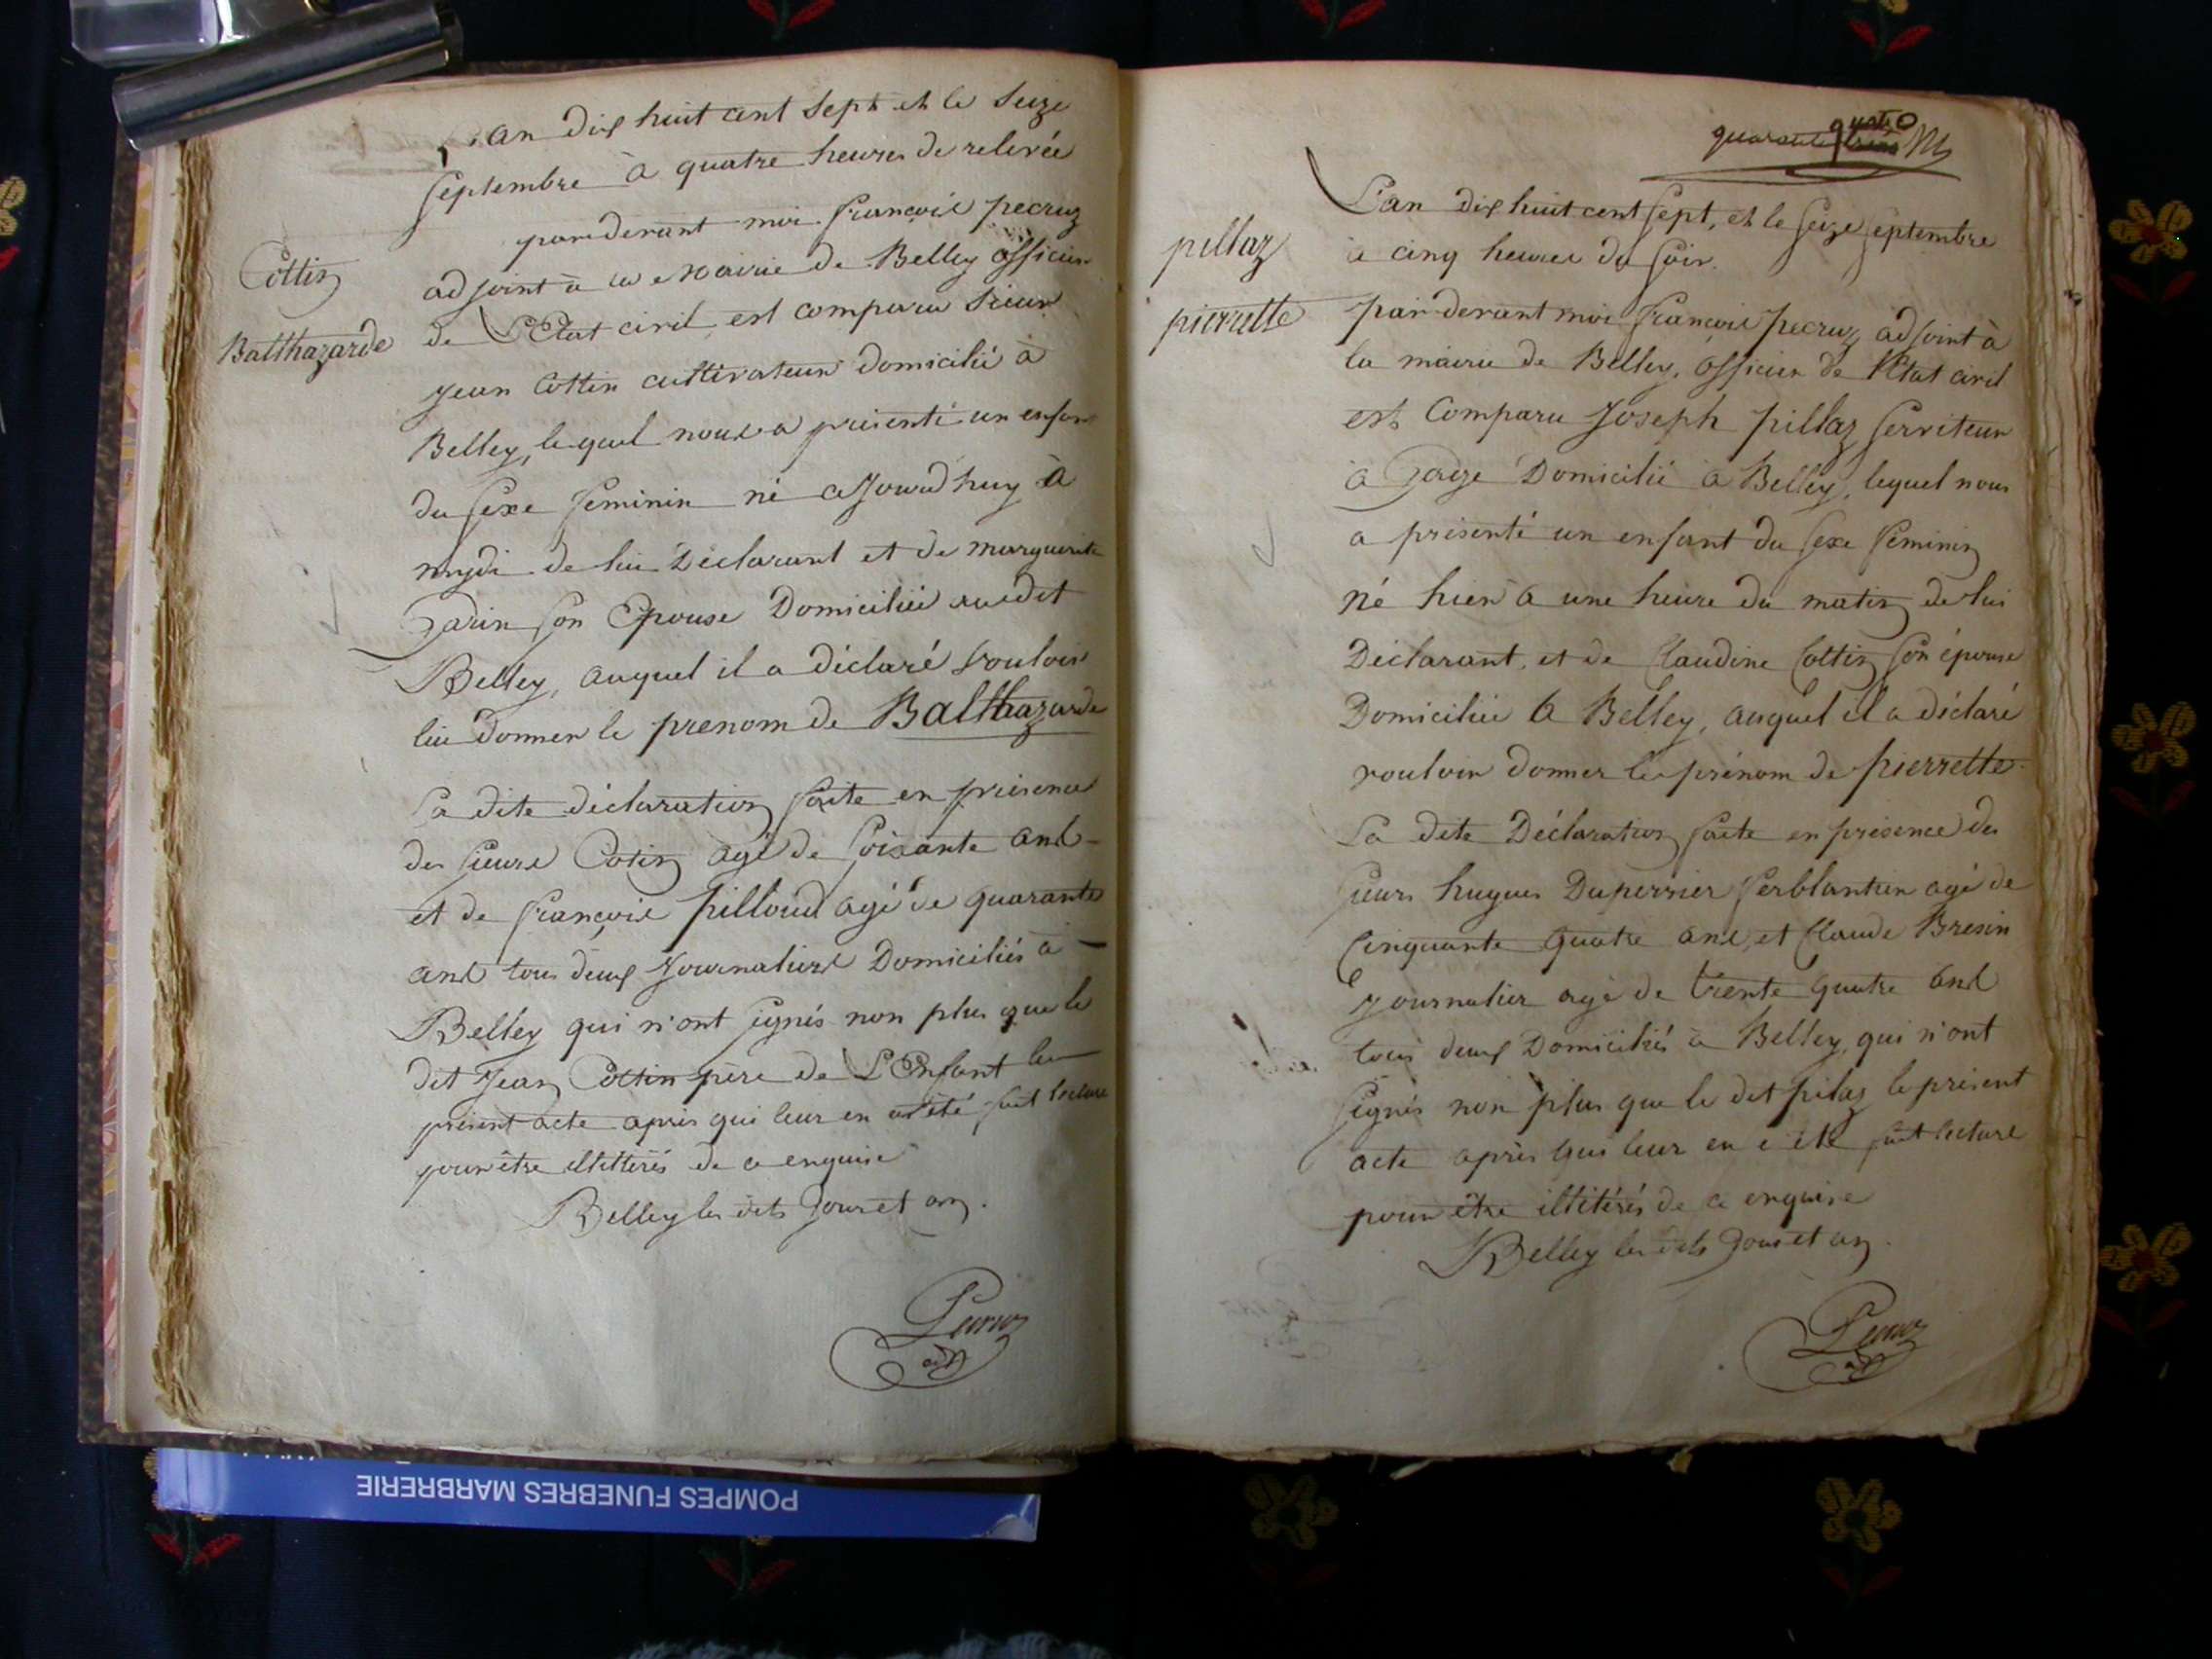 L'an dix huit cent sept et le seize
septembre à quatre heures de relevée
pardevant moi françois pecruz
adjoint à la Mairie de Belley officier
de L'Etat civil est comparu sieur
Jean Cottin cultivateur domicilié à
Belley, lequel nous a présenté un enfant
du sexe feminin né aujourd'huy à
mydi de lui Déclarant et de marguerite
son Epouse Domiciliée audit
Belley, auquel il a déclaré vouloir
lui donner le prenom de Balthazarde
La dite déclaration faite en présence
des sieurs Cotin agé de soixante ans
et de françois pilloud agé de quarante
ans tous deux Journaliers Domiciliés à
Belley qui n'ont signés non plus que le
dit Jean Cottin père de L'Enfant le
présent acte après que leur en a été fait lecture
pour être illitterés de ce enquis
Belley les dits Jour et an.
Cottin
Balthazarde
adjt
POMPES FUNEBRES MARBRERIE
quarante quatre
L'an dix huit cent sept, et le seize septembre
à cinq heures du soir.
pardevant moi françois pecruz, adjoint à
la mairie de Belley, officier de l'Etat civil
est Comparu Joseph pillaz serviteur
à Gage Domicilié à Belley, lequel nous
a présenté un enfant du sexe feminin
né hier à une heure du matin de lui
Déclarant, et de Claudine Cottin son épouse
Domiciliée à Belley, auquel il a déclaré
vouloir donner le prénom de pierrette.
La dite Déclaration faite en présence des
sieurs hugues Duperrier ferblantier agé de
Cinquante quatre ans, et Claude Bresin
Journalier agé de trente quatre ans
tous deux Domiciliés à Belley, qui n'ont
signés non plus que le dit pilaz le présent
acte après que leur en a été fait lecture
pour être illitérés de ce enquis
Belley les dits Jour et an.
pillaz
pierrette
adjt